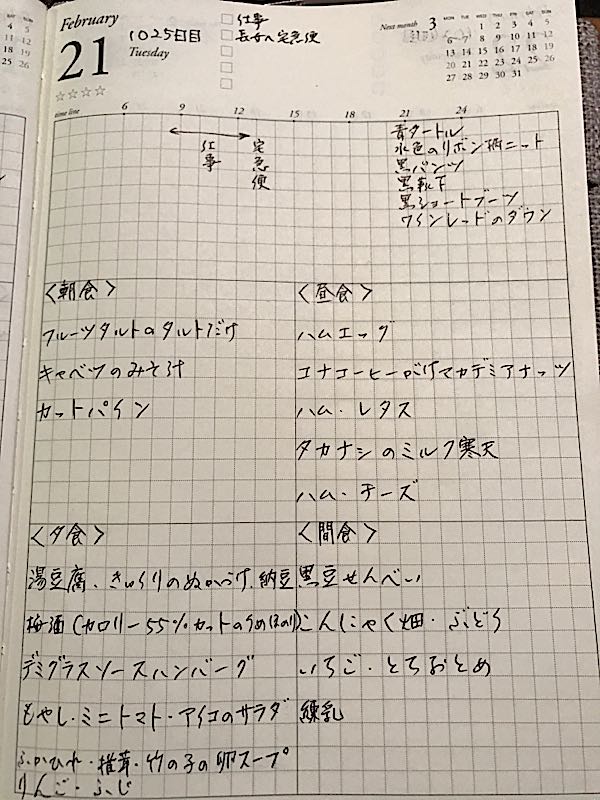 February
21
1025日目
Tuesday
仕事
長女へ宅急便
Next month 3
MON TUE WED THU FRI SAT SUN
1 2 3 4 5
6 7 8 9 10 11 12
13 14 15 16 17 18 19
20 21 22 23 24 25 26
27 28 29 30 31
☆☆☆☆
time line 6 9 12 15 18 21 24
仕事
宅急便
青タートル
水色のリボン柄ニット
黒パンツ
黒靴下
黒ショートブーツ
ワインレッドのダウン
<朝食>
フルーツタルトのタルトだけ
キャベツのみそ汁
カットパイン
<昼食>
ハムエッグ
コナコーヒーがけマカデミアナッツ
ハム・レタス
タカナシのミルク寒天
ハム・チーズ
<夕食>
湯豆腐、きゅうりのぬかづけ、納豆
梅酒(カロリー55%カットのうめほのり)
デミグラスソースハンバーグ
もやし・ミニトマト・アイコのサラダ
ふかひれ・椎茸・竹の子の卵スープ
りんご・ふじ
<間食>
黒豆せんべい
こんにゃく畑・ぶどう
いちご・とちおとめ
練乳